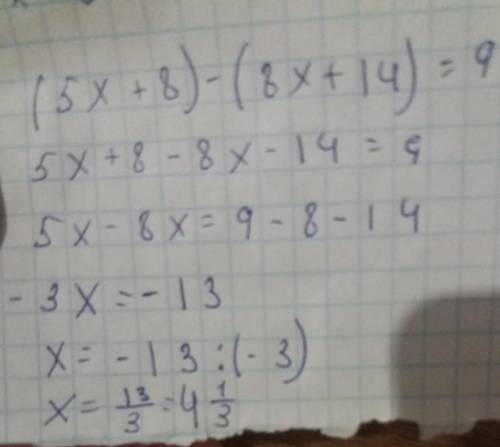 (5x+8)-(8x+14)=9
5x+8-8x-14=9
5x-8x=9-8-14
-3x=-13
x=-13:(-3)
x=13/3=4 1/3